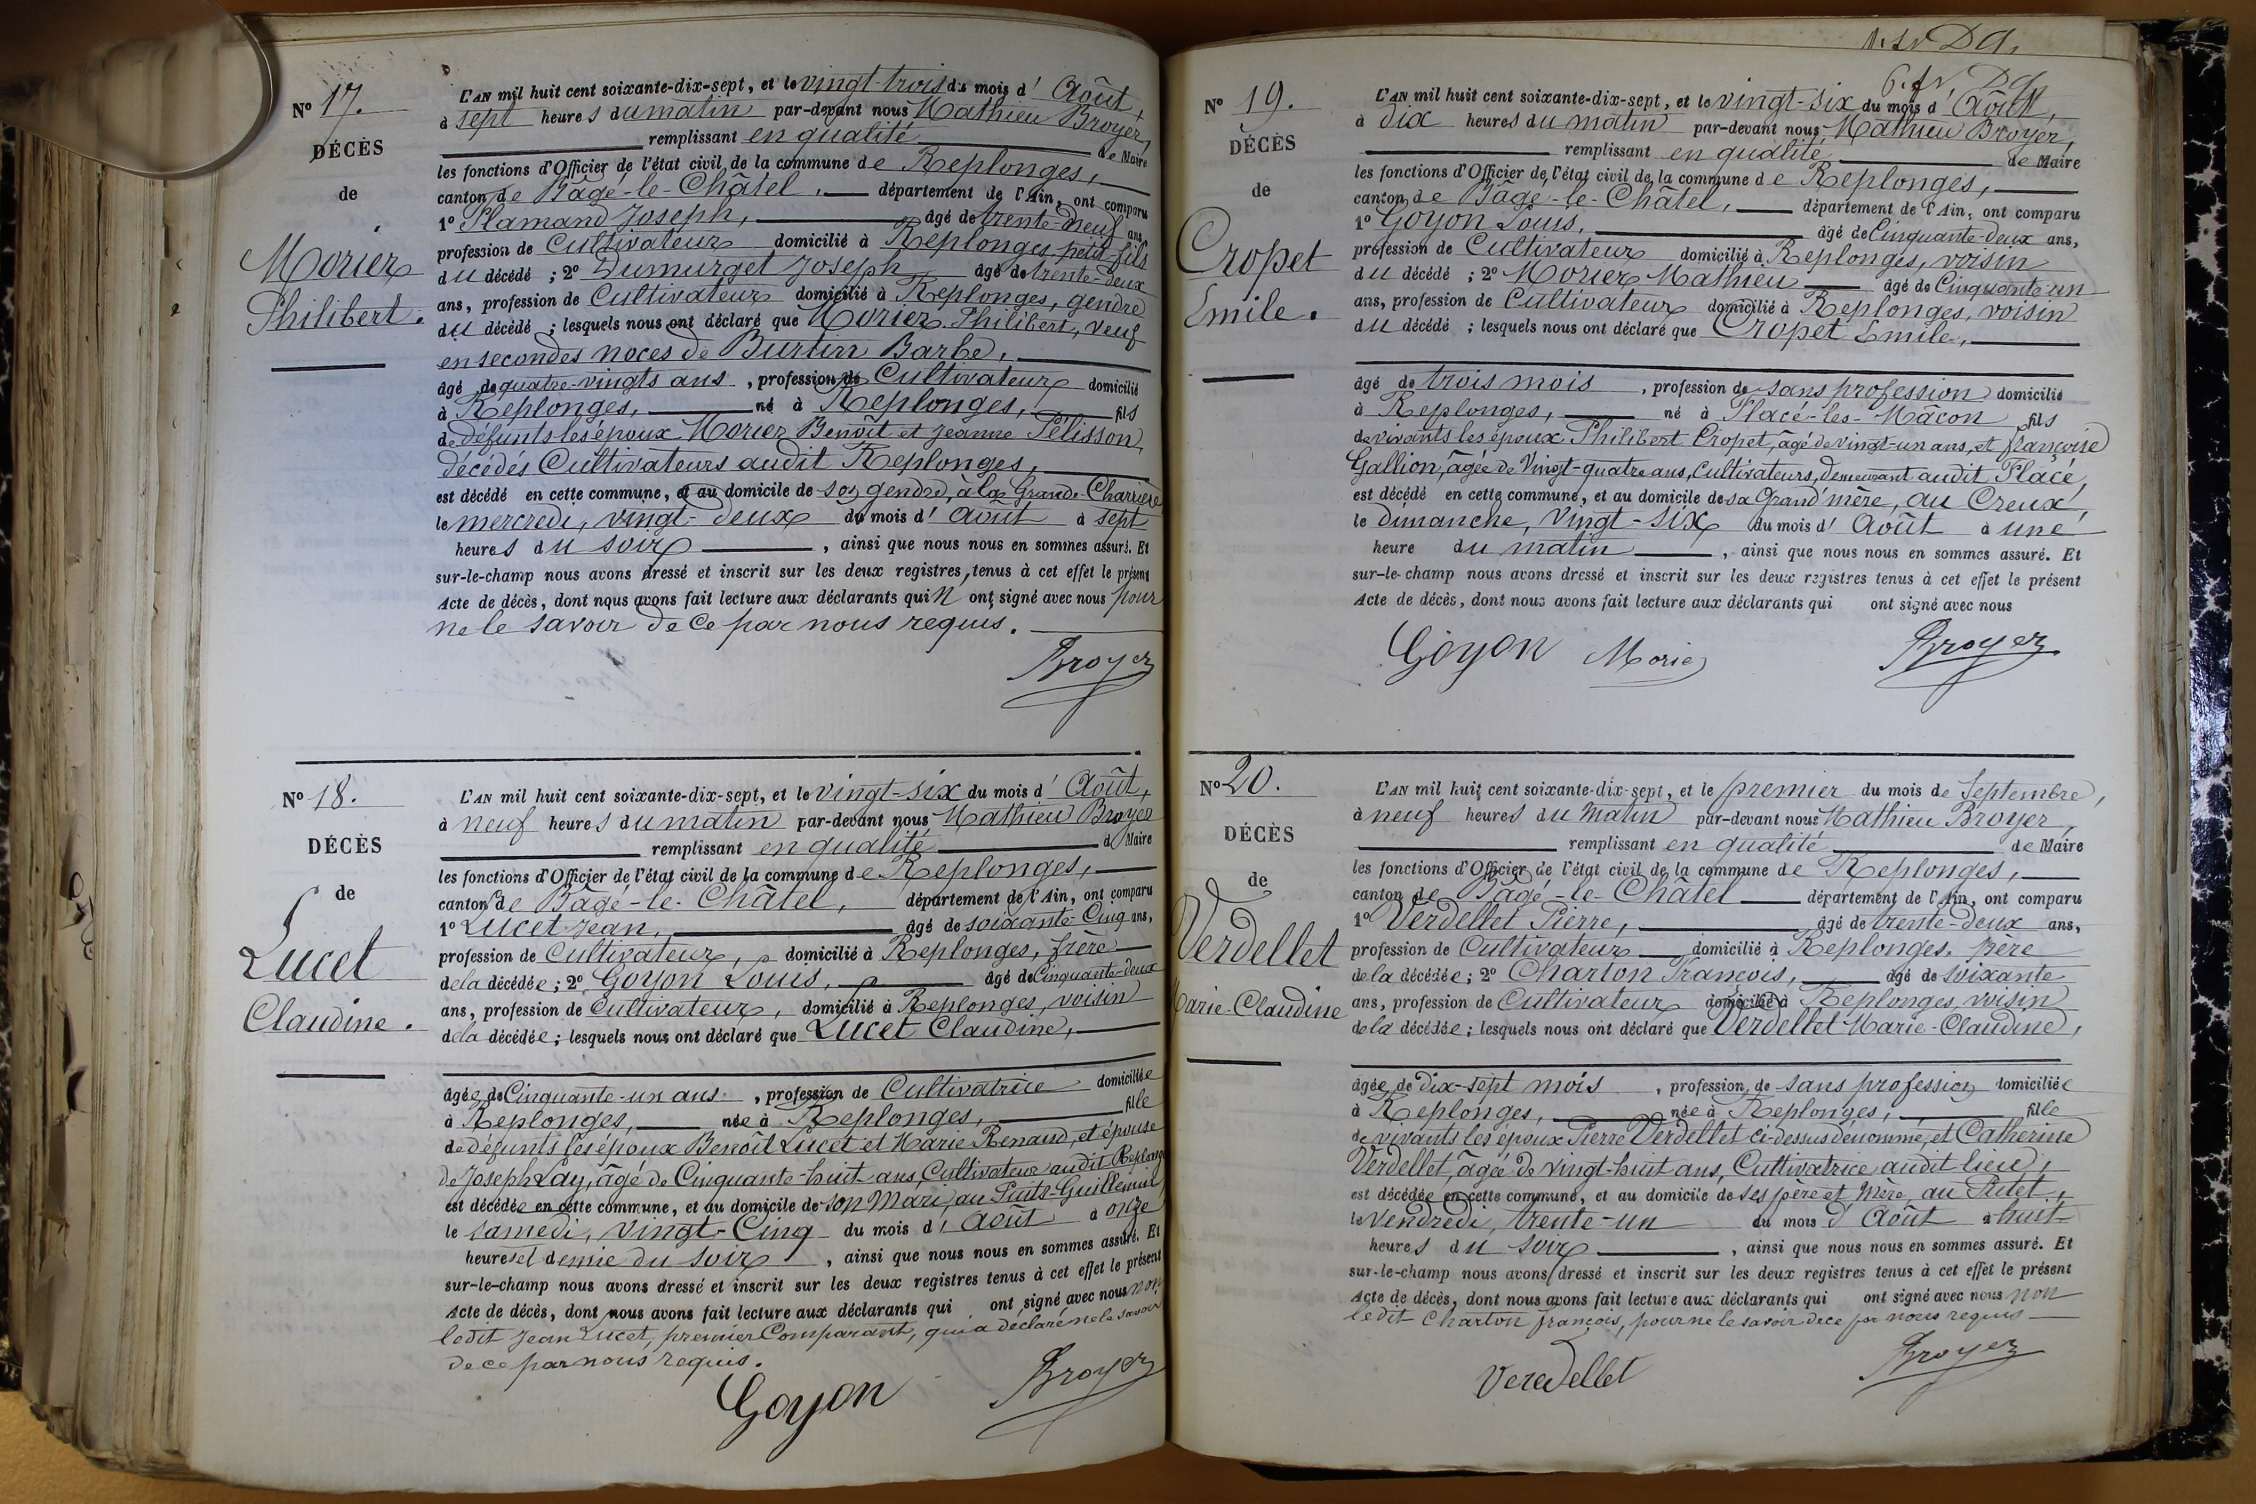 Nº 17.
DÉCÈS
de
Morier
Philibert.
L'AN mil huit cent soixante-dix-sept, et le vingt-trois du mois d' Août,
à sept heures du matin par-devant nous Mathieu Broyer,
remplissant en qualité de Maire
les fonctions d'Officier de l'état civil de la commune de Replonges,
canton de Bâgé-le-Châtel, département de l'Ain, ont comparu
1º Flamand Joseph, âgé de trente-neuf ans,
profession de Cultivateur domicilié à Replonges, petit-fils
du décédé ; 2º Dumurget Joseph, âgé de trente-deux
ans, profession de Cultivateur domicilié à Replonges, gendre
du décédé ; lesquels nous ont déclaré que Morier Philibert, veuf
en secondes noces de Burtin Barbe,
âgé de quatre-vingts ans , profession de Cultivateur domicilié
à Replonges, né à Replonges, fils
de défunts les époux Morier Benoît et Jeanne Pélisson,
décédés Cultivateurs audit Replonges,
est décédé en cette commune, et au domicile de son gendre, à la Grande-Charrière
le mercredi, vingt-deux du mois d' Août à sept
heures du soir , ainsi que nous nous en sommes assuré. Et
sur-le-champ nous avons dressé et inscrit sur les deux registres, tenus à cet effet le présent
Acte de décès, dont nous avons fait lecture aux déclarants qui n'ont signé avec nous pour
ne le savoir de ce par nous requis.
Broyer
Nº 18.
DÉCÈS
de
Lucet
Claudine.
L'AN mil huit cent soixante-dix-sept, et le vingt-six du mois d' Août,
à neuf heures du matin par-devant nous Mathieu Broyer
remplissant en qualité de Maire
les fonctions d'Officier de l'état civil de la commune de Replonges,
canton de Bâgé-le-Châtel, département de l'Ain, ont comparu
1º Lucet Jean, âgé de soixante-Cinq ans,
profession de Cultivateur, domicilié à Replonges, frère
de la décédée ; 2º Goyon Louis, âgé de Cinquante-deux
ans, profession de Cultivateur, domicilié à Replonges, voisin
de la décédée ; lesquels nous ont déclaré que Lucet Claudine,
âgée de Cinquante-un ans , profession de Cultivatrice domiciliée
à Replonges, née à Replonges, fille
de défunts les époux Benoît Lucet et Marie Renaud, et épouse
de Joseph Lay, âgé de Cinquante-huit ans, Cultivateur audit Replonges
est décédée en cette commune, et au domicile de son Mari, au Puits-Guillemin
le samedi, vingt-Cinq du mois d' Août à onze
heures et demie du soir , ainsi que nous nous en sommes assuré. Et
sur-le-champ nous avons dressé et inscrit sur les deux registres tenus à cet effet le présent
Acte de décès, dont nous avons fait lecture aux déclarants qui ont signé avec nous non
ledit Jean Lucet, premier Comparant, qui a déclaré ne le savoir
de ce par nous requis.
Goyon Broyer
Nº 19.
DÉCÈS
de
Cropet
Emile.
L'AN mil huit cent soixante-dix-sept, et le vingt-six du mois d' Août,
à dix heures du matin par-devant nous Mathieu Broyer,
remplissant en qualité de Maire
les fonctions d'Officier de l'état civil de la commune de Replonges,
canton de Bâgé-le-Châtel, département de l'Ain, ont comparu
1º Goyon Louis, âgé de Cinquante-deux ans,
profession de Cultivateur domicilié à Replonges, voisin
du décédé ; 2º Morier Mathieu âgé de Cinquante-un
ans, profession de Cultivateur domicilié à Replonges, voisin
du décédé ; lesquels nous ont déclaré que Cropet Emile,
âgé de trois mois , profession de sans profession domicilié
à Replonges, né à Placé-les-Mâcon fils
de vivants les époux Philibert Cropet, âgé de vingt-un ans, et françoise
Gallion, âgée de Vingt-quatre ans, Cultivateurs, demeurant audit Placé,
est décédé en cette commune, et au domicile de sa Grand'mère, au Creux,
le dimanche, vingt-six du mois d' Août à une
heure du matin , ainsi que nous nous en sommes assuré. Et
sur-le-champ nous avons dressé et inscrit sur les deux registres tenus à cet effet le présent
Acte de décès, dont nous avons fait lecture aux déclarants qui ont signé avec nous
Goyon Morier Broyer
Nº 20.
DÉCÈS
de
Verdellet
Marie-Claudine
L'AN mil huit cent soixante-dix-sept, et le premier du mois de Septembre,
à neuf heures du Matin par-devant nous Mathieu Broyer,
remplissant en qualité de Maire
les fonctions d'Officier de l'état civil de la commune de Replonges,
canton de Bâgé-le-Châtel département de l'Ain, ont comparu
1º Verdellet Pierre, âgé de trente-deux ans,
profession de Cultivateur domicilié à Replonges, père
de la décédée ; 2º Charton François, âgé de soixante
ans, profession de Cultivateur domicilié à Replonges, voisin
de la décédée ; lesquels nous ont déclaré que Verdellet Marie-Claudine,
âgée de Dix-sept mois , profession de sans profession domiciliée
à Replonges, née à Replonges, fille
de vivants les époux Pierre Verdellet ci-dessus dénommé, et Catherine
Verdellet, âgée de vingt-huit ans, Cultivatrice audit lieu,
est décédée en cette commune, et au domicile de ses père et Mère, au Putet,
le Vendredi, trente-un du mois d' Août à huit
heures du soir , ainsi que nous nous en sommes assuré. Et
sur-le-champ nous avons dressé et inscrit sur les deux registres tenus à cet effet le présent
Acte de décès, dont nous avons fait lecture aux déclarants qui ont signé avec nous non
ledit Charton françois, pour ne le savoir de ce par nous requis
Verdellet Broyer